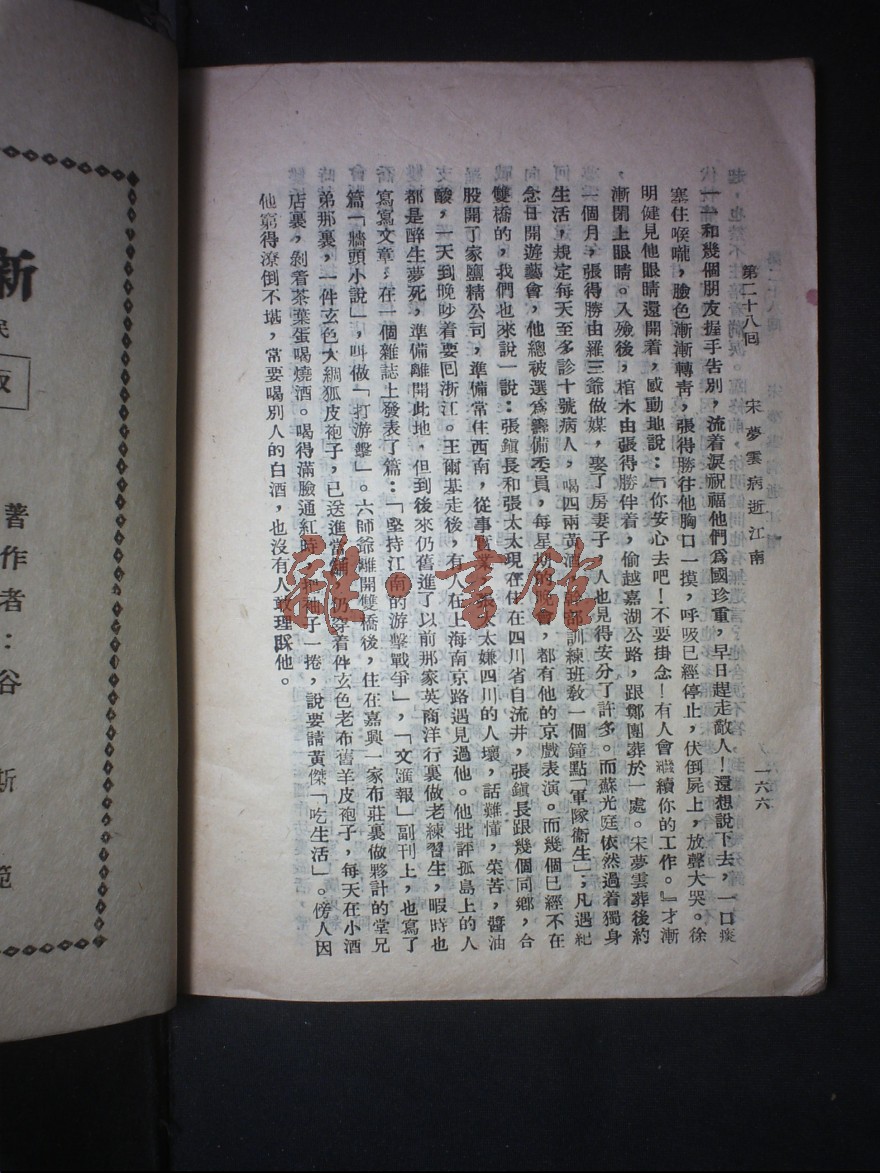 第二十八回 宋夢雲病逝江南 一六六
一一和幾個朋友握手告別，流着淚祝福他們爲國珍重，早日趕走敵人！還想說下去，一口痰
塞住喉嚨，臉色漸漸轉靑，張得勝往他胸口一摸，呼吸已經停止，伏倒屍上，放聲大哭。徐
明健見他眼睛還開着，感動地說：『你安心去吧！不要掛念！有人會繼續你的工作。』才漸
漸閉上眼睛。入殮後，棺木由張得勝伴着，偷越嘉湖公路，跟鄭團葬於一處。宋夢雲葬後約
一個月，張得勝由羅三爺做媒，娶了房妻子，人也見得安分了許多。而蘇光庭依然過着獨身
生活，規定每天至多診十號病人，喝四兩黃酒，幹部訓練班敎一個鐘點「軍隊衞生」；凡遇紀
念日開遊藝會，他總被選爲籌備委員，每星期的晚會，都有他的京戲表演。而幾個已經不在
雙橋的，我們也來說一說：張鎭長和張太太現在住在四川省自流井，張鎭長跟幾個同鄉，合
股開了家鹽精公司，準備常住西南，從事實業，張太太嫌四川的人壞，話難懂，菜苦，醬油
酸，一天到晚吵着要回浙江。王爾基走後，有人在上海南京路遇見過他。他批評孤島上的人
都是醉生夢死，準備離開此地，但到後來仍舊進了以前那家英商洋行裏做老練習生，暇時也
寫寫文章，在一個雜誌上發表了篇：「堅持江南的游擊戰爭」，「文匯報」副刊上，也寫了
篇「牆頭小說」，叫做「打游擊」。六師爺離開雙橋後，住在嘉興一家布莊裏做夥計的堂兄
弟那裏，一件玄色大綢狐皮袍子，已送進當舖，仍穿着件玄色老布舊羊皮袍子，每天在小酒
店裏，剝着茶葉蛋喝燒酒。喝得滿臉通紅時，把袖子一捲，說要請黃傑「吃生活」。傍人因
他窮得潦倒不堪，常要喝別人的白酒，也沒有人敢理睬他。
雜·書館
新
民
著作者：谷斯範